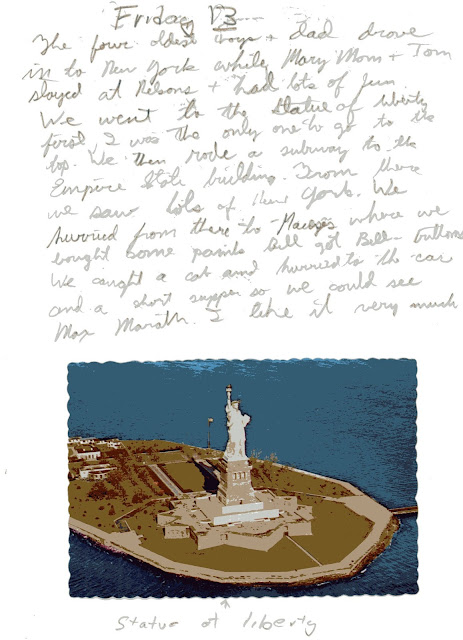 Friday 13
The four oldest boys + dad drove
in to New York while Mary Mom + Tom
stayed at Nelsons + had lots of fun.
We went to the Statue of liberty
first, I was the only one to go to the
top. We then rode a subway to the
Empire State building. From there
we saw lots of New York. We
hurried from there to Maceys where we
bought some paints Bill got Bell-buttoms
We caught a cab and hurried to the car
and a short supper so we could see
Max Marath. I like it very much
Statue of liberty